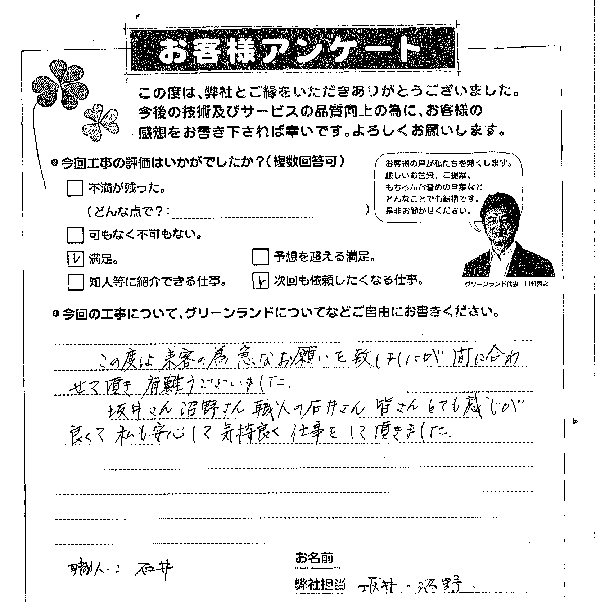 お客様アンケート
この度は、弊社とご縁をいただきありがとうございました。
今後の技術及びサービスの品質向上の為に、お客様の
感想をお書き下されば幸いです。よろしくお願いします。
今回工事の評価はいかがでしたか?(複数回答可)
不満が残った。
(どんな点で?: )
可もなく不可もない。
満足。
予想を超える満足。
知人等に紹介できる仕事。
次回も依頼したくなる仕事。
お客様の声が私たちを熱くします。
厳しいお言葉、ご提案、
もちろんお褒めの言葉など
どんなことでも結構です。
是非お聞かせください。
グリーンランド代表
今回の工事について、グリーンランドについてなどご自由にお書きください。
この度は来客の為急なお願いを致しましたが間に合わ
せて頂き有難うございました。
坂井さん沼野さん職人の石井さん皆さんとても感じが
良くて私も安心して気持良く仕事をして頂きました
職人: 石井
お名前
弊社担当 坂井・沼野